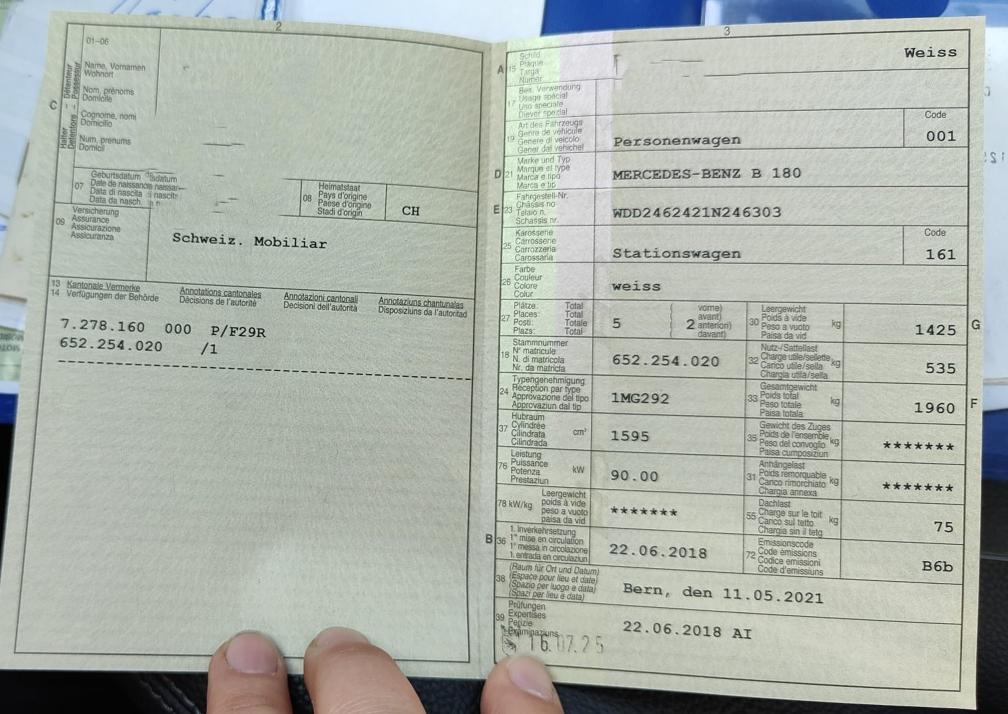 2
01-06
C
Halter Détenteur
Detentore Possessur
Name, Vornamen
Wohnort
Nom, prénoms
Domicile
Cognome, nomi
Domicilio
Num, prenums
Domicil
07
Geburtsdatum
Date de naissance
Data di nascita
Data da nasch.
08
Heimatstaat
Pays d'origine
Paese d'origine
Stadi d'origin
CH
09
Versicherung
Assurance
Assicurazione
Assicuranza
Schweiz. Mobiliar
13 Kantonale Vermerke
14 Verfügungen der Behörde
Annotations cantonales
Décisions de l'autorité
Annotazioni cantonali
Decisioni dell'autorità
Annotaziuns chantunalas
Disposiziuns da l'autoritad
7.278.160 000 P/F29R
652.254.020 /1
3
A 15
Schild
Plaque
Targa
Numer
Weiss
17
Bes. Verwendung
Usage spécial
Uso speciale
Diever spezial
19
Art des Fahrzeugs
Genre de véhicule
Genere di veicolo
Gener dal vehichel
Personenwagen
Code
001
D 21
Marke und Typ
Marque et type
Marca e tipo
Marca e tip
MERCEDES-BENZ B 180
E 23
Fahrgestell-Nr.
Châssis no
Telaio n.
Schassis nr.
WDD2462421N246303
25
Karosserie
Carrosserie
Carrozzeria
Carossaria
Stationswagen
Code
161
26
Farbe
Couleur
Colore
Colur
weiss
27
Plätze: Total
Places: Total
Posti: Totale
Plazs: Total
5
2
vorne)
avant)
anteriori)
davant)
30
Leergewicht
Poids à vide
Peso a vuoto
Paisa da vid
kg
1425
G
18
Stammnummer
N° matricule
N. di matricola
Nr. da matricla
652.254.020
32
Nutz-/Sattellast
Charge utile/sellette
Carico utile/sella
Chargia utila/sella
kg
535
24
Typengenehmigung
Réception par type
Approvazione del tipo
Approvaziun dal tip
1MG292
33
Gesamtgewicht
Poids total
Peso totale
Paisa totala
kg
1960
F
37
Hubraum
Cylindrée
Cilindrata
Cilindrada
cm³
1595
35
Gewicht des Zuges
Poids de l'ensemble
Peso del convoglio
Paisa cumposiziun
kg
*******
76
Leistung
Puissance
Potenza
Prestaziun
kW
90.00
31
Anhängelast
Poids remorquable
Carico rimorchiato
Chargia annexa
kg
*******
78 kW/kg
Leergewicht
poids à vide
peso a vuoto
paisa da vid
*******
55
Dachlast
Charge sur le toit
Carico sul tetto
Chargia sin il tetg
kg
75
B 36
1. Inverkehrsetzung
1re mise en circulation
1a messa in circolazione
1. entrada en circulaziun
22.06.2018
72
Emissionscode
Code émissions
Codice emissioni
Code d'emissiuns
B6b
38
(Raum für Ort und Datum)
(Espace pour lieu et date)
(Spazio per luogo e data)
(Spazi per lieu e data)
Bern, den 11.05.2021
39
Prüfungen
Expertises
Perizie
Examinaziuns
22.06.2018 AI
16.07.25